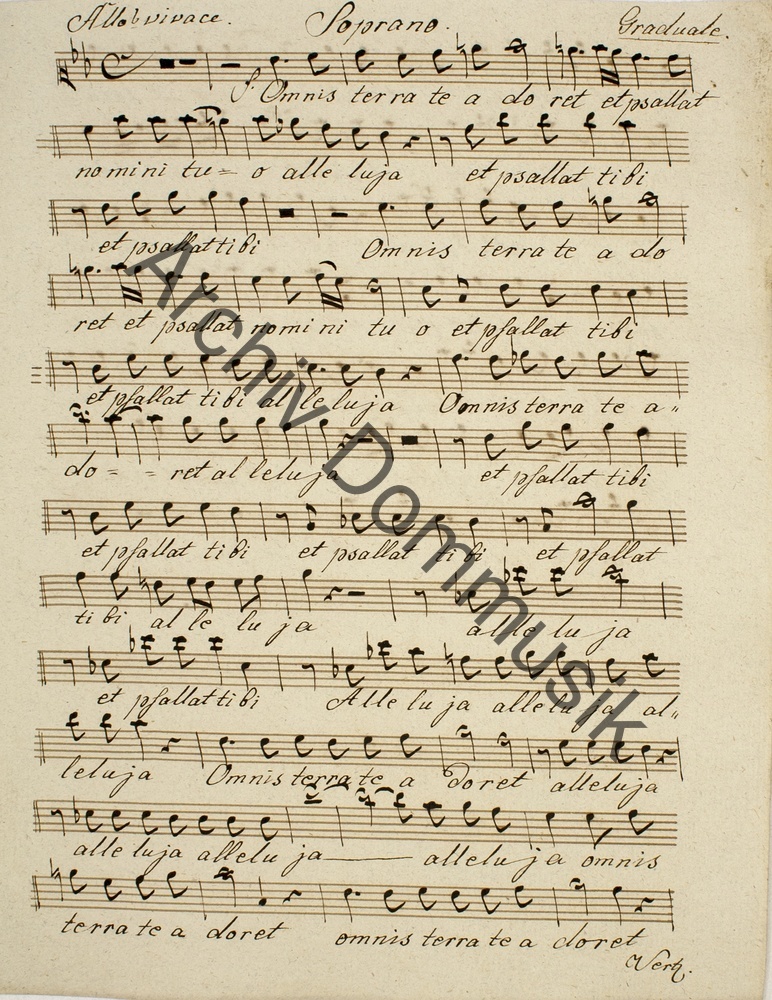 Allo vivace. Soprano. Graduale.
S. Omnis terra te a do ret et psallat
nomini tu = o alle luja et psallat tibi
et psallat tibi Omnis terra te a do
ret et psallat nomini ni tu o et psallat tibi
et psallat tibi al le luja Omnis terra te a =
do = = ret al leluja et psallat tibi
et psallat tibi et psallat tibi et psallat
tibi al le lu ja alle lu ja
et psallat tibi Alle lu ja alle lu ja al =
leluja Omnis terra te a doret alleluja
alle luja allelu ja allelu ja omnis
terra te a doret omnis terra te a doret
Vert.
Archiv Dommusik